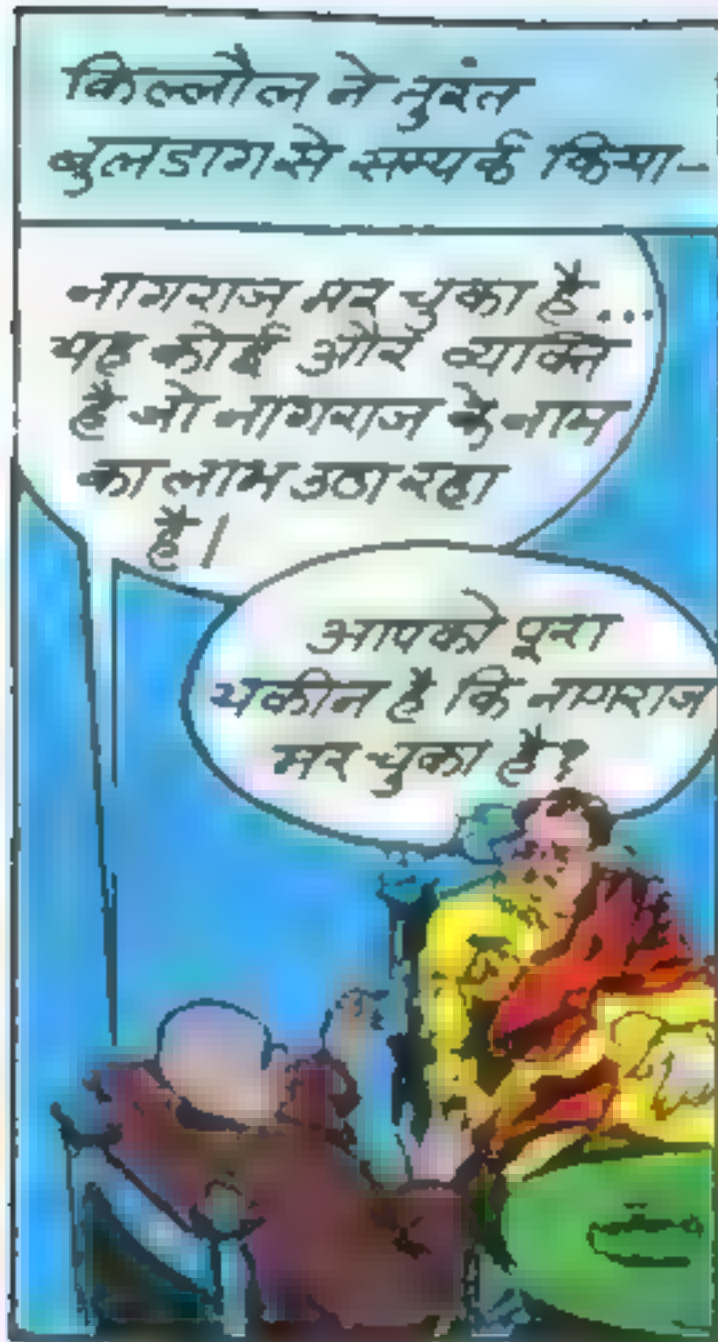 किल्लौल ने तुरंत
बुलडाग से सम्पर्क किया-
नागराज मर चुका है...
यह कोई और व्यक्ति
है जो नागराज के नाम
का लाभ उठा रहा
है।
आपको पूरा
यकीन है कि नागराज
मर चुका है?